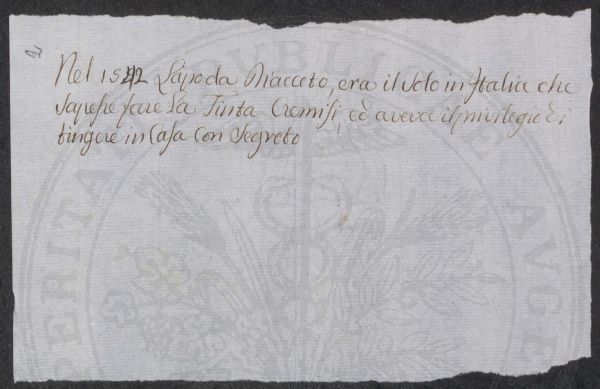 Nel 1542 Lapo da Diacceto, era il solo in Italia che
sapesse fare la Tinta Cremisi, ed aveva il privilegio di
tingere in Casa con Segreto